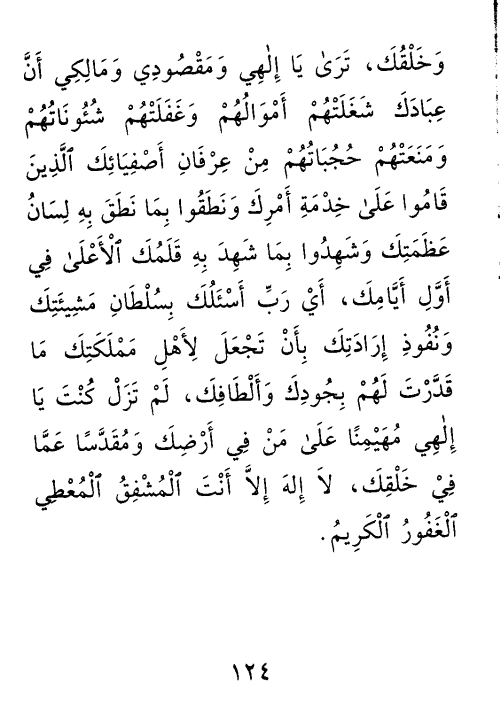 وَخَلْقُكَ، تَرَىٰ يَا إِلٰهِي وَمَقْصُودِي وَمَالِكِي أَنَّ
عِبَادَكَ شَغَلَتْهُمْ أَمْوَالُهُمْ وَغَفَلَتْهُمْ شُئُونَاتُهُمْ
وَمَنَعَتْهُمْ حُجُبَاتُهُمْ مِنْ عِرْفَانِ أَصْفِيَائِكَ ٱلَّذِينَ
قَامُوا عَلَىٰ خِدْمَةِ أَمْرِكَ وَنَطَقُوا بِمَا نَطَقَ بِهِ لِسَانُ
عَظَمَتِكَ وَشَهِدُوا بِمَا شَهِدَ بِهِ قَلَمُكَ ٱلْأَعْلَىٰ فِي
أَوَّلِ أَيَّامِكَ، أَيْ رَبِّ أَسْئَلُكَ بِسُلْطَانِ مَشِيئَتِكَ
وَنُفُوذِ إِرَادَتِكَ بِأَنْ تَجْعَلَ لِأَهْلِ مَمْلَكَتِكَ مَا
قَدَّرْتَ لَهُمْ بِجُودِكَ وَأَلْطَافِكَ، لَمْ تَزَلْ كُنْتَ يَا
إِلٰهِي مُهَيْمِنًا عَلَىٰ مَنْ فِي أَرْضِكَ وَمُقَدَّسًا عَمَّا
فِيْ خَلْقِكَ، لاَ إِلهَ إِلاَّ أَنْتَ ٱلْمُشْفِقُ ٱلْمُعْطِي
ٱلْغَفُورُ ٱلْكَرِيمُ.
١٢٤